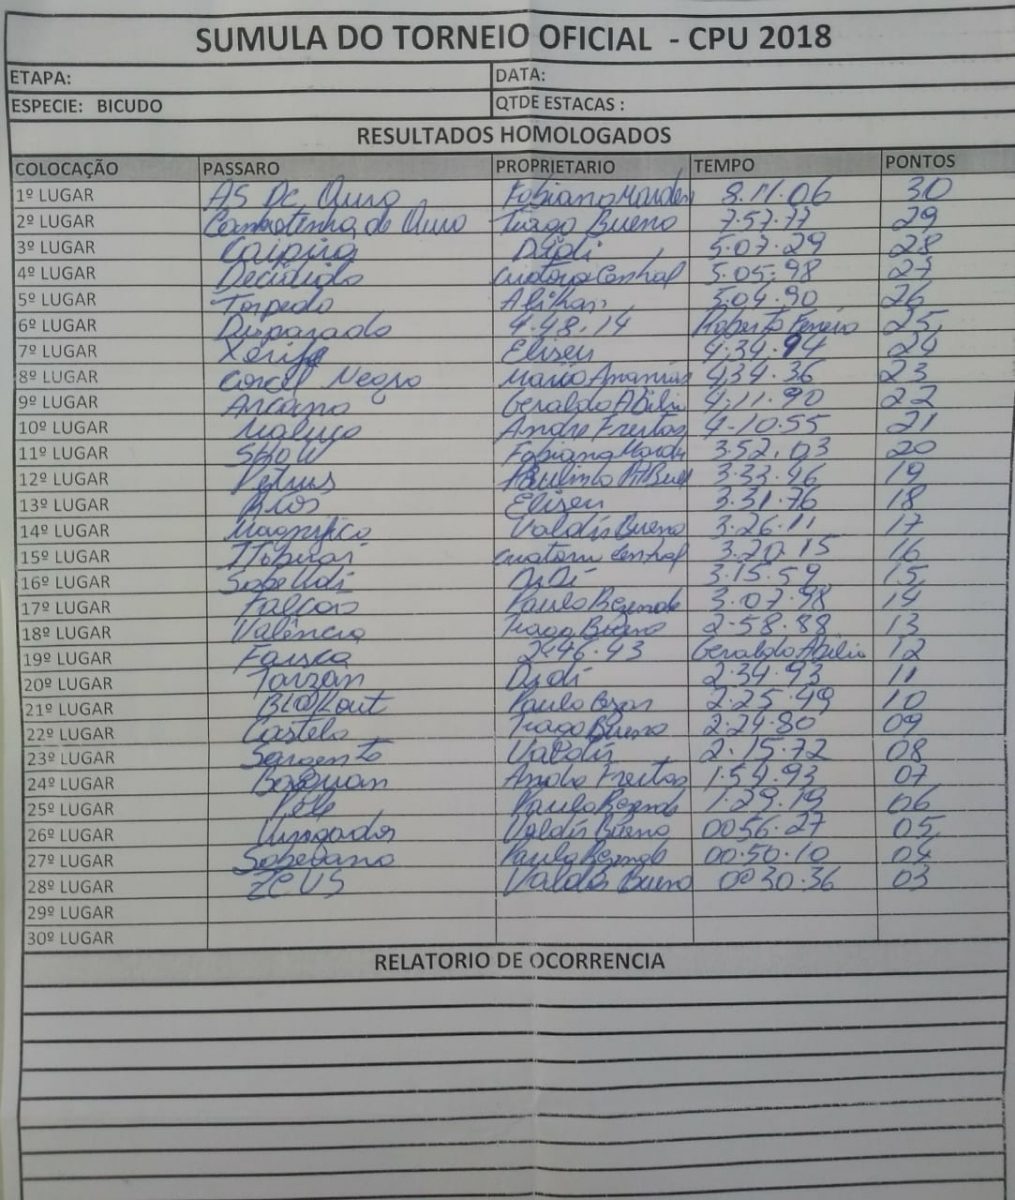 SUMULA DO TORNEIO OFICIAL - CPU 2018
ETAPA: DATA:
ESPECIE: BICUDO QTDE ESTACAS :
RESULTADOS HOMOLOGADOS
COLOCAÇÃO PASSARO PROPRIETARIO TEMPO PONTOS
1º LUGAR AS De Ouro Fabiano 8.11.06 30
2º LUGAR de Ouro Tiago Bueno 7.57.77 29
3º LUGAR Caipira 5.07.29 28
4º LUGAR Decidido 5.05.98 27
5º LUGAR Torpedo 5.04.90 26
6º LUGAR Disparado 4.48.14 Roberto 25
7º LUGAR Xerife Eliseu 4.34.94 24
8º LUGAR Corcel Negro Mario Ananias 4.34.36 23
9º LUGAR Arcano Geraldo Abilio 4.11.90 22
10º LUGAR Maluco Andre Freitas 4.10.55 21
11º LUGAR SHOW Fabiano 3.52.03 20
12º LUGAR Petrus Paulinho 3.33.46 19
13º LUGAR Eliseu 3.31.76 18
14º LUGAR Magnifico Valdir Bueno 3.26.11 17
15º LUGAR 3.20.15 16
16º LUGAR Didi 3.15.59 15
17º LUGAR Falcão Paulo Rezende 3.07.98 14
18º LUGAR Valência Tiago Bueno 2.58.88 13
19º LUGAR Faisca 2.46.43 Geraldo Abilio 12
20º LUGAR Tarzan Didi 2.34.93 11
21º LUGAR Paulo Cesar 2.25.49 10
22º LUGAR Castelo Tiago Bueno 2.24.80 09
23º LUGAR Sargento Valdir 2.15.72 08
24º LUGAR Andre Freitas 1.54.93 07
25º LUGAR Pelé Paulo Rezende 1.29.19 06
26º LUGAR Vingador Valdir Bueno 0056.27 05
27º LUGAR Soberano Paulo Rezende 00.50.10 04
28º LUGAR ZEUS Valdir Bueno 0030.36 03
29º LUGAR
30º LUGAR
RELATORIO DE OCORRENCIA